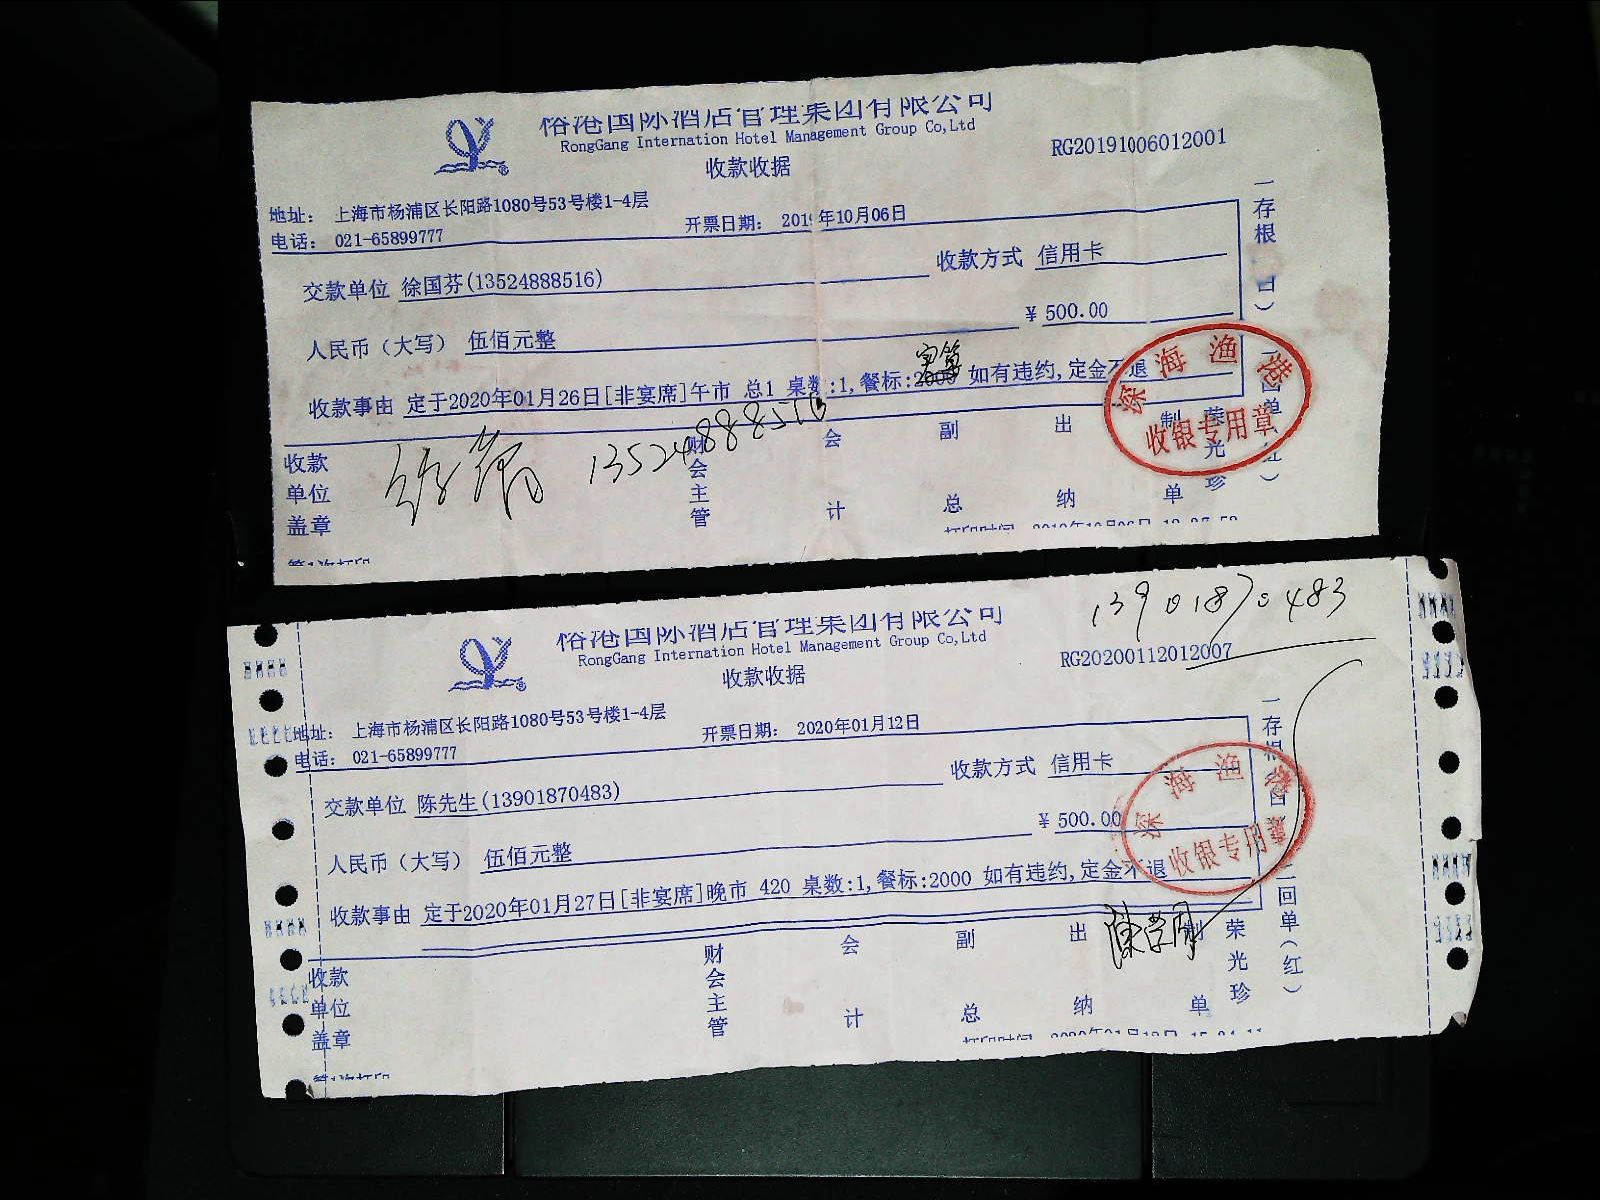 裕港国际酒店管理集团有限公司
RongGang International Hotel Management Group Co,Ltd
收款收据
RG20191006012001
地址： 上海市杨浦区长阳路1080号53号楼1-4层
电话： 021-65899777
开票日期： 201 年10月06日
交款单位 徐国芬(13524888516)
收款方式 信用卡
人民币（大写） 伍佰元整
¥ 500.00
收款事由 定于2020年01月26日[非宴席]午市 总1 桌数:1,餐标:2000 如有违约,定金不退
收款单位盖章
13524888516
财会主管
会计
副总
出纳
制单
荣光珍
一存根（白）
二回单（红）
深海渔港
收银专用章
第1次打印
打印时间 2019年10月06日
裕港国际酒店管理集团有限公司
RongGang International Hotel Management Group Co,Ltd
收款收据
13901870483
RG20200112012007
地址： 上海市杨浦区长阳路1080号53号楼1-4层
电话： 021-65899777
开票日期： 2020年01月12日
交款单位 陈先生(13901870483)
收款方式 信用卡
人民币（大写） 伍佰元整
¥ 500.00
收款事由 定于2020年01月27日[非宴席]晚市 420 桌数:1,餐标:2000 如有违约,定金不退
收款单位盖章
财会主管
会计
副总
出纳
制单
荣光珍
一存根 白
二回单（红）
深海渔港
收银专用章
第1次打印
打印时间 2020年01月12日